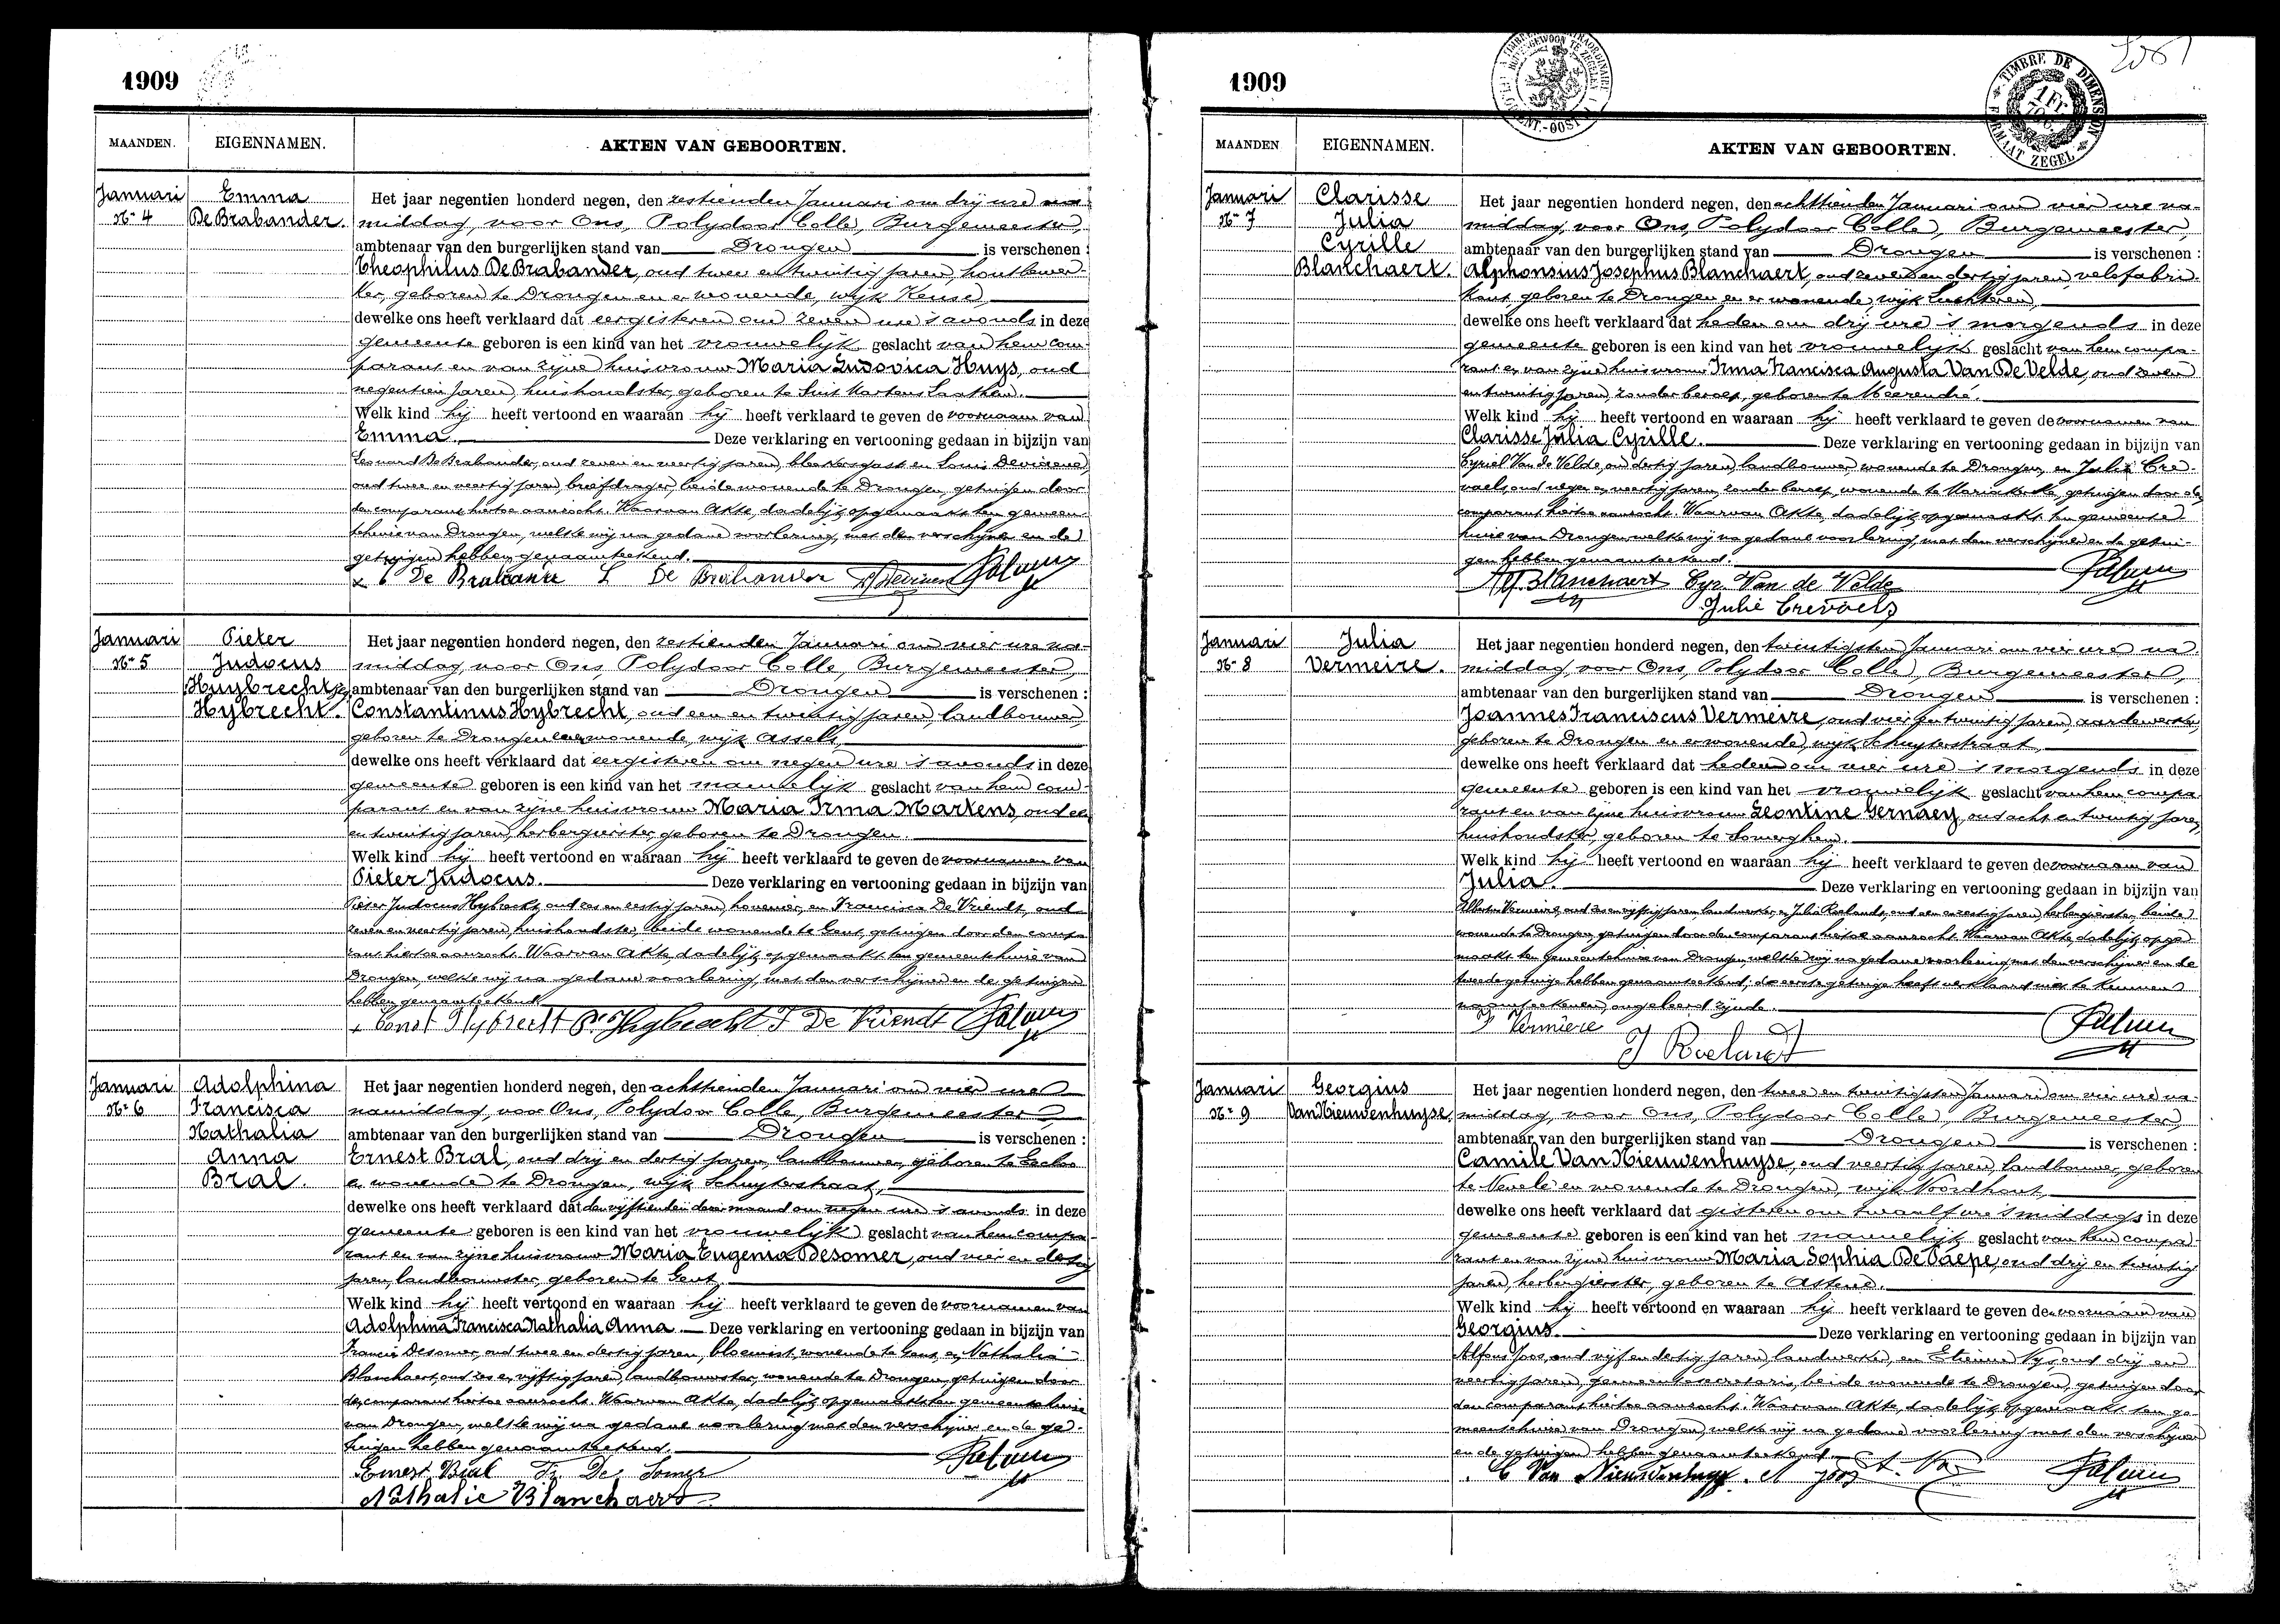 1909
MAANDEN.
EIGENNAMEN.
AKTEN VAN GEBOORTEN.
Januari
Nr 4
Emma
De Brabander.
Het jaar negentien honderd negen, den zestienden Januari om drij ure na-
middag, voor Ons, Polydoor Colle, Burgemeester,
ambtenaar van den burgerlijken stand van Drongen is verschenen :
Theophilus De Brabander, oud twee en twintig jaren, houtbewer-
ker, geboren te Drongen en er wonende, wijk Keuse,
dewelke ons heeft verklaard dat eergisteren om zeven ure 's avonds in deze
gemeente geboren is een kind van het vrouwelijk geslacht van hem com-
parant en van zijne huisvrouw Maria Ludovica Huys, oud
negentien jaren, huishoudster, geboren te Sint Martens Laathem.
Welk kind hij heeft vertoond en waaraan hij heeft verklaard te geven de voornaam van
Emma. Deze verklaring en vertooning gedaan in bijzijn van
Leonard De Brabander, oud zeven en veertig jaren, en Louis
oud twee en veertig jaren, briefdrager, beide wonende te Drongen, getuigen door
den comparant hiertoe aanzocht. Waarvan Akte, dadelijk opgemaakt ten gemeen-
tehuize van Drongen, welke wij na gedane voorlezing, met den verschijner en de
getuigen hebben genaamteekend.
De Brabander L De Brabander
Januari
Nr 5
Pieter
Judocus
Huybrecht
Hybrecht.
Het jaar negentien honderd negen, den zestienden Januari om vier ure na-
middag, voor Ons, Polydoor Colle, Burgemeester,
ambtenaar van den burgerlijken stand van Drongen is verschenen :
Constantinus Hybrecht, oud een en twintig jaren, landbouwer
geboren te Drongen en er wonende, wijk Assels,
dewelke ons heeft verklaard dat eergisteren om negen ure 's avonds in deze
gemeente geboren is een kind van het mannelijk geslacht van hem com-
parant en van zijne huisvrouw Maria Irma Martens, oud een
en twintig jaren, herbergierster, geboren te Drongen.
Welk kind hij heeft vertoond en waaraan hij heeft verklaard te geven de voornamen van
Pieter Judocus. Deze verklaring en vertooning gedaan in bijzijn van
Pieter Judocus Hybrecht, oud zes en zestig jaren, hovenier, en Francisca De Vriendt, oud
zeven en veertig jaren, huishoudster, beide wonende te Gent, getuigen door den compa-
rant hiertoe aanzocht. Waarvan Akte, dadelijk opgemaakt ten gemeentehuize van
Drongen, welke wij na gedane voorlezing, met den verschijner en de getuigen
hebben genaamteekend.
Const Hybrecht P. Hybrecht F De Vriendt
Januari
Nr 6
Adolphina
Francisca
Nathalia
Anna
Bral.
Het jaar negentien honderd negen, den achttienden Januari om vier ure
namiddag, voor Ons, Polydoor Colle, Burgemeester,
ambtenaar van den burgerlijken stand van Drongen is verschenen :
Ernest Bral, oud drij en dertig jaren, landbouwer, geboren te
en wonende te Drongen, wijk Schuyterstraat,
dewelke ons heeft verklaard dat den vijftienden dezer maand om negen ure 's avonds in deze
gemeente geboren is een kind van het vrouwelijk geslacht van hem compa-
rant en van zijne huisvrouw Maria Eugenia Desomer, oud vier en dertig
jaren, landbouwster, geboren te Gent,
Welk kind hij heeft vertoond en waaraan hij heeft verklaard te geven de voornamen van
Adolphina Francisca Nathalia Anna. Deze verklaring en vertooning gedaan in bijzijn van
Francis Desomer, oud twee en dertig jaren, bloemist, wonende te Gent, en Nathalia
Blanchaert, oud zes en vijftig jaren, landbouwster, wonende te Drongen, getuigen door
den comparant hiertoe aanzocht. Waarvan Akte, dadelijk opgemaakt ten gemeentehuize
van Drongen, welke wij na gedane voorlezing met den verschijner en de ge-
tuigen hebben genaamteekend.
Ernest Bral Fr. De Somer
Nathalie Blanchaert
1909
TIMBRE DE DIMENSION
FORMAAT ZEGEL
MAANDEN
EIGENNAMEN.
AKTEN VAN GEBOORTEN.
Januari
Nr 7
Clarisse
Julia
Cyrille
Blanchaert.
Het jaar negentien honderd negen, den achttienden Januari om vier ure na-
middag, voor Ons, Polydoor Colle, Burgemeester,
ambtenaar van den burgerlijken stand van Drongen is verschenen :
Alphonsius Josephus Blanchaert, oud zeven en dertig jaren, velofabri-
kant, geboren te Drongen en er wonende, wijk Luchteren,
dewelke ons heeft verklaard dat heden om drij ure 's morgends in deze
gemeente geboren is een kind van het vrouwelijk geslacht van hem compa-
rant en van zijne huisvrouw Irma Francisca Augusta Van De Velde, oud zeven
en twintig jaren, zonder beroep, geboren te Meerendré.
Welk kind hij heeft vertoond en waaraan hij heeft verklaard te geven de voornamen van
Clarisse Julia Cyrille. Deze verklaring en vertooning gedaan in bijzijn van
Cyriel Van de Velde, oud dertig jaren, landbouwer wonende te Drongen, en Julie Cre-
vaels, oud negen en veertig jaren, zonder beroep, wonende te Mariakerke, getuigen door den
comparant hiertoe aanzocht. Waarvan Akte, dadelijk opgemaakt ten gemeente-
huize van Drongen welke wij na gedane voorlezing, met den verschijner en de getui-
gen hebben genaamteekend.
Alf. Blanchaert Cyr. Van de Velde
Julie Crevaels
Januari
Nr 8
Julia
Vermeire.
Het jaar negentien honderd negen, den twintigsten Januari om vier ure na-
middag, voor Ons, Polydoor Colle, Burgemeester,
ambtenaar van den burgerlijken stand van Drongen is verschenen :
Joannes Franciscus Vermeire, oud vier en twintig jaren, aardewerker,
geboren te Drongen en er wonende, wijk Schuyterstraat,
dewelke ons heeft verklaard dat heden om vier ure 's morgends in deze
gemeente geboren is een kind van het vrouwelijk geslacht van hem compa-
rant en van zijne huisvrouw Leontine Gernaey, oud acht en twintig jaren,
huishoudster, geboren te Somerghem.
Welk kind hij heeft vertoond en waaraan hij heeft verklaard te geven de voornaam van
Julia. Deze verklaring en vertooning gedaan in bijzijn van
Vermeire, oud zes en vijftig jaren landwerker, en Julia Roelandt, oud een en zestig jaren, herbergierster, beide
wonende te Drongen, getuigen door den comparant hiertoe aanzocht. Waarvan Akte dadelijk opge-
maakt ten Gemeentehuize van Drongen welke wij na gedane voorlezing, met den verschijner en de
tweede getuige hebben genaamteekend, de eerste getuige heeft verklaard niet te kunnen
naamteekenen, ongeleerd zijnde.
F Vermiere
J Roelandt
Januari
Nr 9
Georgius
Van Nieuwenhuyse.
Het jaar negentien honderd negen, den twee en twintigsten Januari om vier ure na-
middag, voor Ons, Polydoor Colle, Burgemeester,
ambtenaar van den burgerlijken stand van Drongen is verschenen :
Camile Van Nieuwenhuyse, oud veertig jaren, landbouwer, geboren
te Nevele en wonende te Drongen, wijk Noordhout,
dewelke ons heeft verklaard dat gisteren om twaalf ure 's middags in deze
gemeente geboren is een kind van het mannelijk geslacht van hem compa-
rant en van zijne huisvrouw Maria Sophia De Paepe, oud drij en twintig
jaren, herbergierster, geboren te Astene.
Welk kind hij heeft vertoond en waaraan hij heeft verklaard te geven de voornaam van
Georgius. Deze verklaring en vertooning gedaan in bijzijn van
Alfons Joos, oud vijf en dertig jaren, landwerker, en Etienne Nys, oud drij en
veertig jaren, gemeentesecretaris, beide wonende te Drongen, getuigen door
den comparant hiertoe aanzocht. Waarvan Akte, dadelijk opgemaakt ten ge-
meentehuize van Drongen, welke wij na gedane voorlezing met den verschijner
en de getuigen hebben genaamteekend.
C Van Nieuwenhuyse A Joos